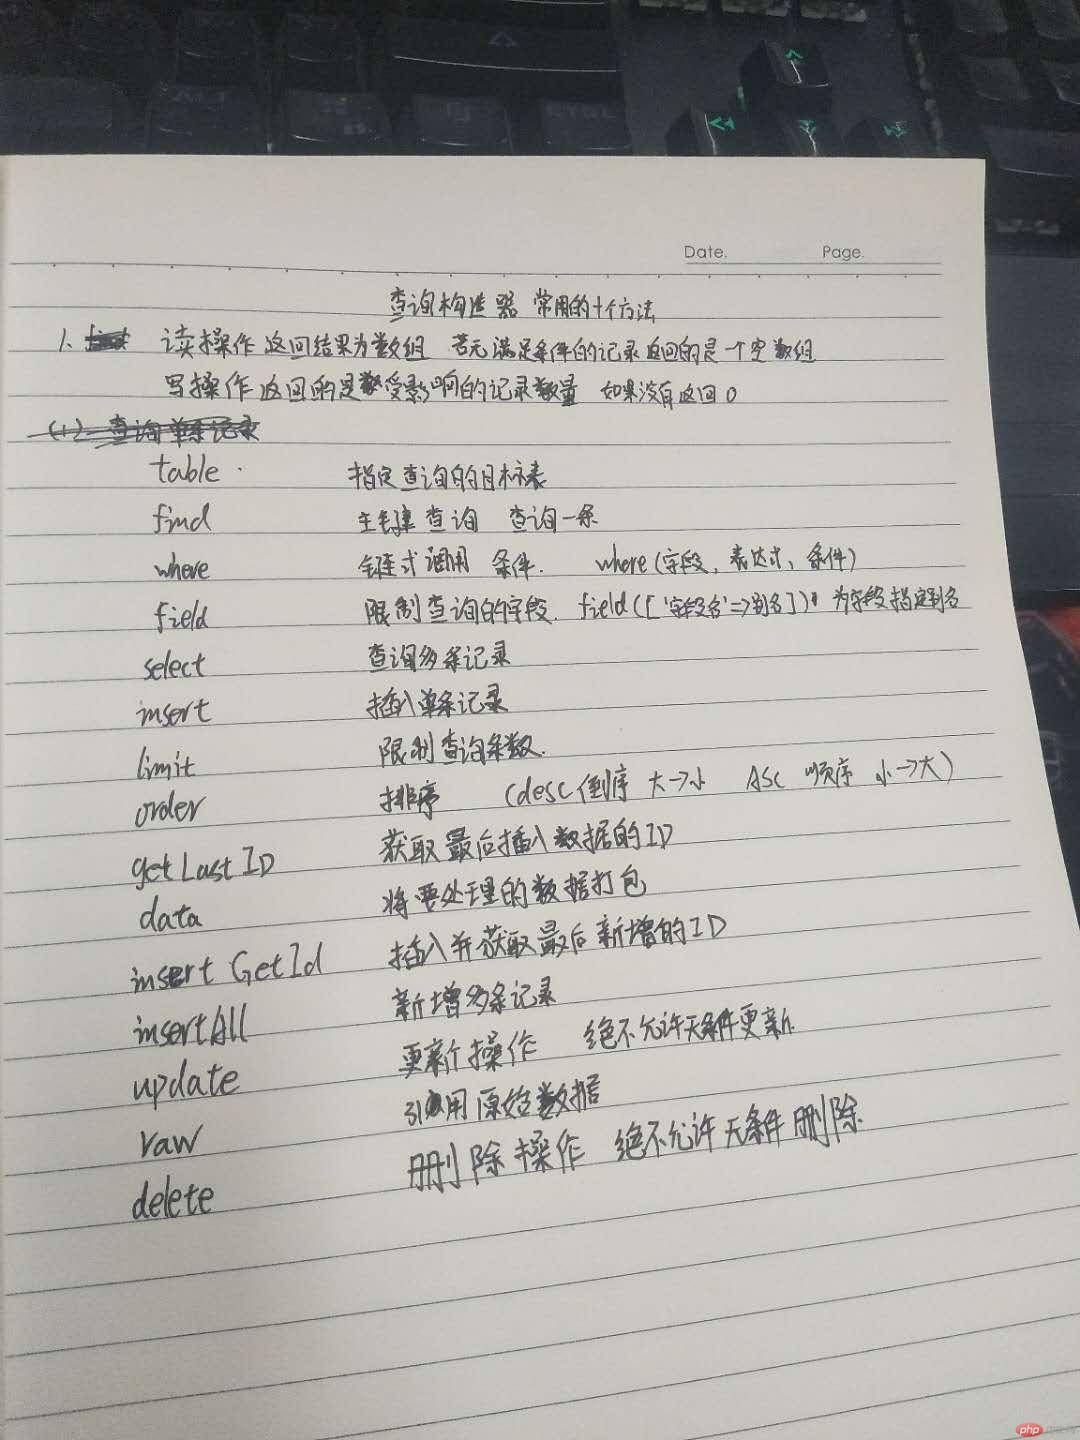 Date. Page.
查询构造器 常用的十个方法
1. 读操作 返回结果为数组 若无满足条件的记录返回的是一个空数组
写操作 返回的是受影响的记录数量 如果没有返回0
(1) 查询单条记录
table 指定查询的目标表
find 主键查询 查询一条
where 链式调用 条件. where(字段, 表达式, 条件)
field 限制查询的字段. field(['字段名'=>别名]) 为字段指定别名
select 查询多条记录
insert 插入单条记录
limit 限制查询条数.
order 排序 (desc 倒序 大->小 ASC 顺序 小->大)
getLastID 获取最后插入数据的ID
data 将要处理的数据打包
insert GetId 插入并获取最后新增的ID
insertAll 新增多条记录
update 更新操作 绝不允许无条件更新.
raw 引用原始数据
delete 删除操作 绝不允许无条件删除
php